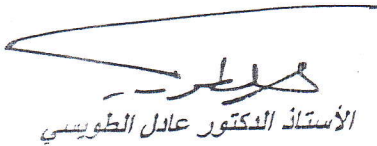 الأستاذ الدكتور عادل الطويسي